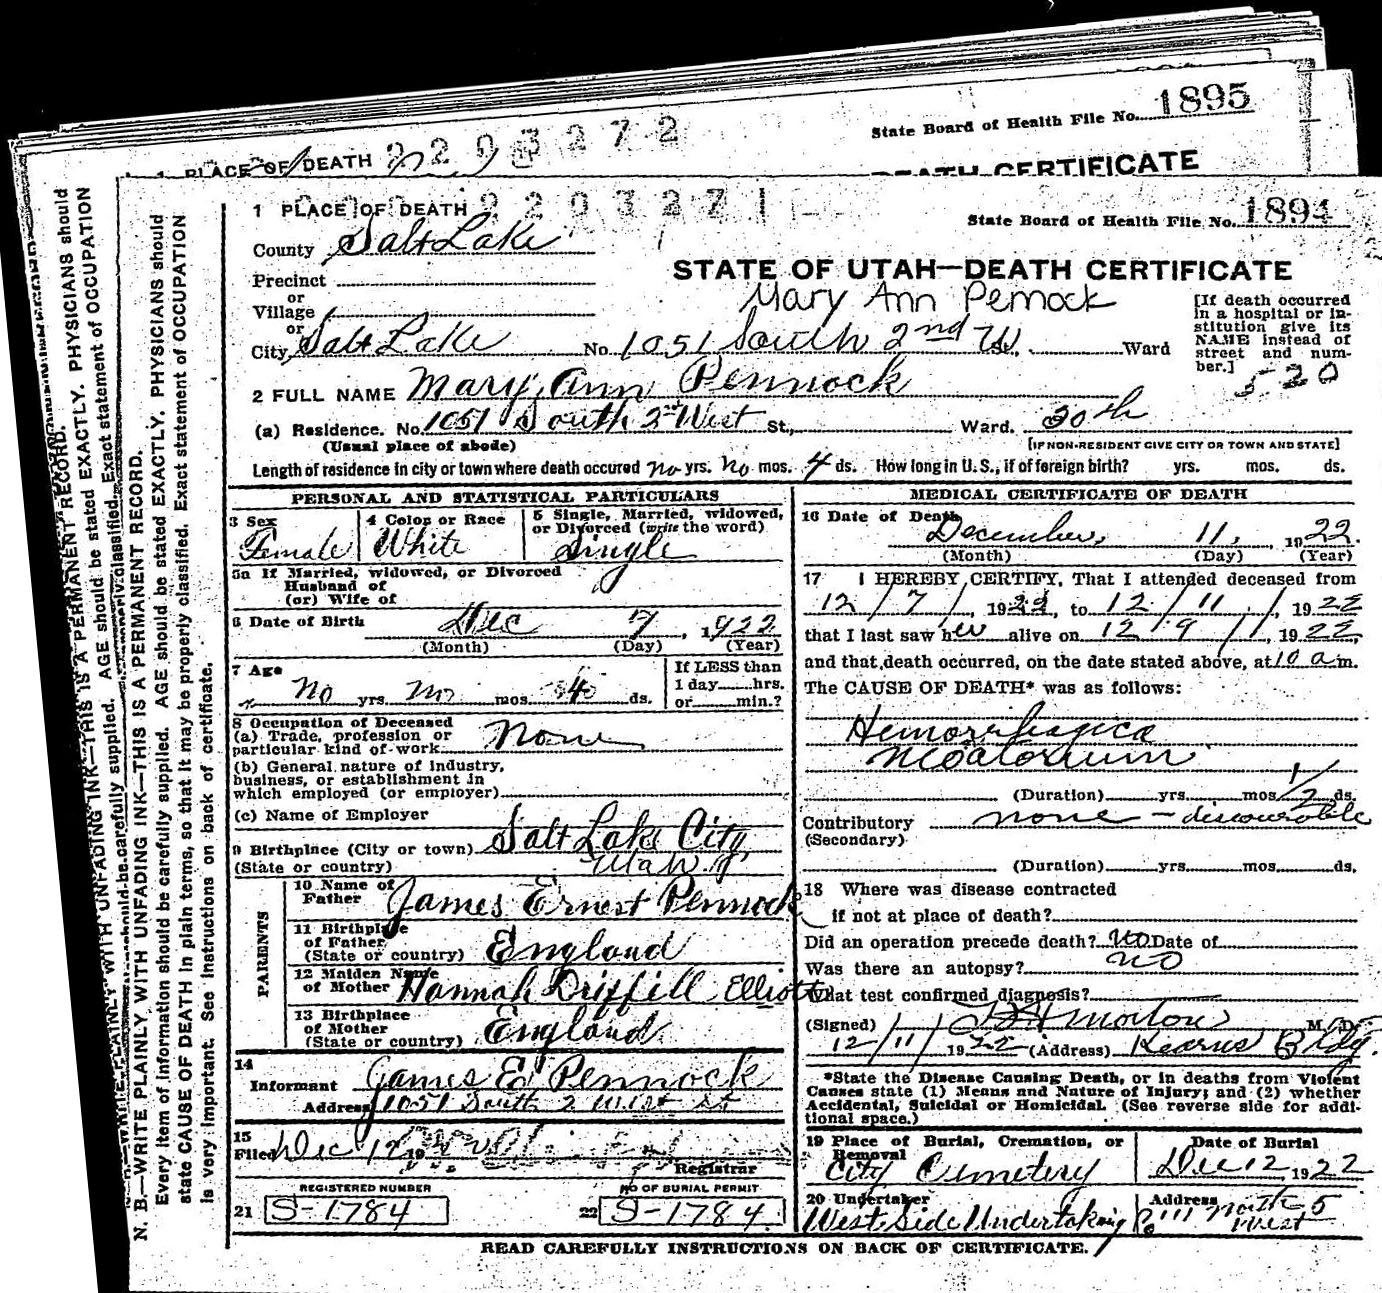 1895
State Board of Health File No.
220327 2
1 PLACE OF DEATH
DEATH CERTIFICATE
220327 1
1 PLACE OF DEATH
State Board of Health File No. 1894
County Salt Lake
Precinct
STATE OF UTAH—DEATH CERTIFICATE
or
Village
Mary Ann Pennock
[If death occurred in a hospital or institution give its NAME instead of street and number.]
or
City Salt Lake No. 1051 South 2nd W St. Ward
520
2 FULL NAME Mary Ann Pennock
(a) Residence. No. 1051 South 2nd West St., Ward. 30th
(Usual place of abode) [IF NON-RESIDENT GIVE CITY OR TOWN AND STATE]
Length of residence in city or town where death occured no yrs. no mos. 4 ds. How long in U. S., if of foreign birth? yrs. mos. ds.
PERSONAL AND STATISTICAL PARTICULARS
3 Sex
Female
4 Color or Race
White
5 Single, Married, widowed, or Divorced (write the word)
Single
5a If Married, widowed, or Divorced
Husband of
(or) Wife of
6 Date of Birth Dec 7, 1922
(Month) (Day) (Year)
7 Age
No yrs. no mos. 4 ds.
If LESS than
1 day hrs.
or min.?
8 Occupation of Deceased
(a) Trade, profession or
particular kind of work None
(b) General nature of industry,
business, or establishment in
which employed (or employer)
(c) Name of Employer
9 Birthplace (City or town) Salt Lake City
(State or country) Utah
PARENTS
10 Name of
Father James Ernest Pennock
11 Birthplace
of Father
(State or country) England
12 Maiden Name
of Mother Hannah Driffill Elliott
13 Birthplace
of Mother
(State or country) England
14
Informant James E Pennock
Address 1051 South 2 West St
15
Filed Dec 12 19
Registrar
REGISTERED NUMBER
21 S-1784
NO OF BURIAL PERMIT
22 S-1784
MEDICAL CERTIFICATE OF DEATH
16 Date of Death
December, 11, 1922.
(Month) (Day) (Year)
17 I HEREBY CERTIFY, That I attended deceased from
12/7/, 1922, to 12/11/, 1922
that I last saw her alive on 12 9/, 1922,
and that death occurred, on the date stated above, at 10 a m.
The CAUSE OF DEATH* was as follows:
Hemorrhagica
Neonatorium
(Duration) yrs. mos. 1/2 ds.
Contributory none - discoverable
(Secondary)
(Duration) yrs. mos. ds.
18 Where was disease contracted
if not at place of death?
Did an operation precede death? No Date of
Was there an autopsy? no
What test confirmed diagnosis?
(Signed) Morton M. D.
12/11 1922 (Address) Kearns Bldg.
*State the Disease Causing Death, or in deaths from Violent
Causes state (1) Means and Nature of Injury; and (2) whether
Accidental, Suicidal or Homicidal. (See reverse side for addi-
tional space.)
19 Place of Burial, Cremation, or
Removal
City Cemetery
Date of Burial
Dec 12 1922
20 Undertaker
West Side Undertaking Co
Address
North 5
West
READ CAREFULLY INSTRUCTIONS ON BACK OF CERTIFICATE.
N. B.—WRITE PLAINLY WITH UNFADING INK—THIS IS A PERMANENT RECORD.
Every item of information should be carefully supplied. AGE should be stated EXACTLY. PHYSICIANS should
state CAUSE OF DEATH in plain terms, so that it may be properly classified. Exact statement of OCCUPATION
is very important. See instructions on back of certificate.